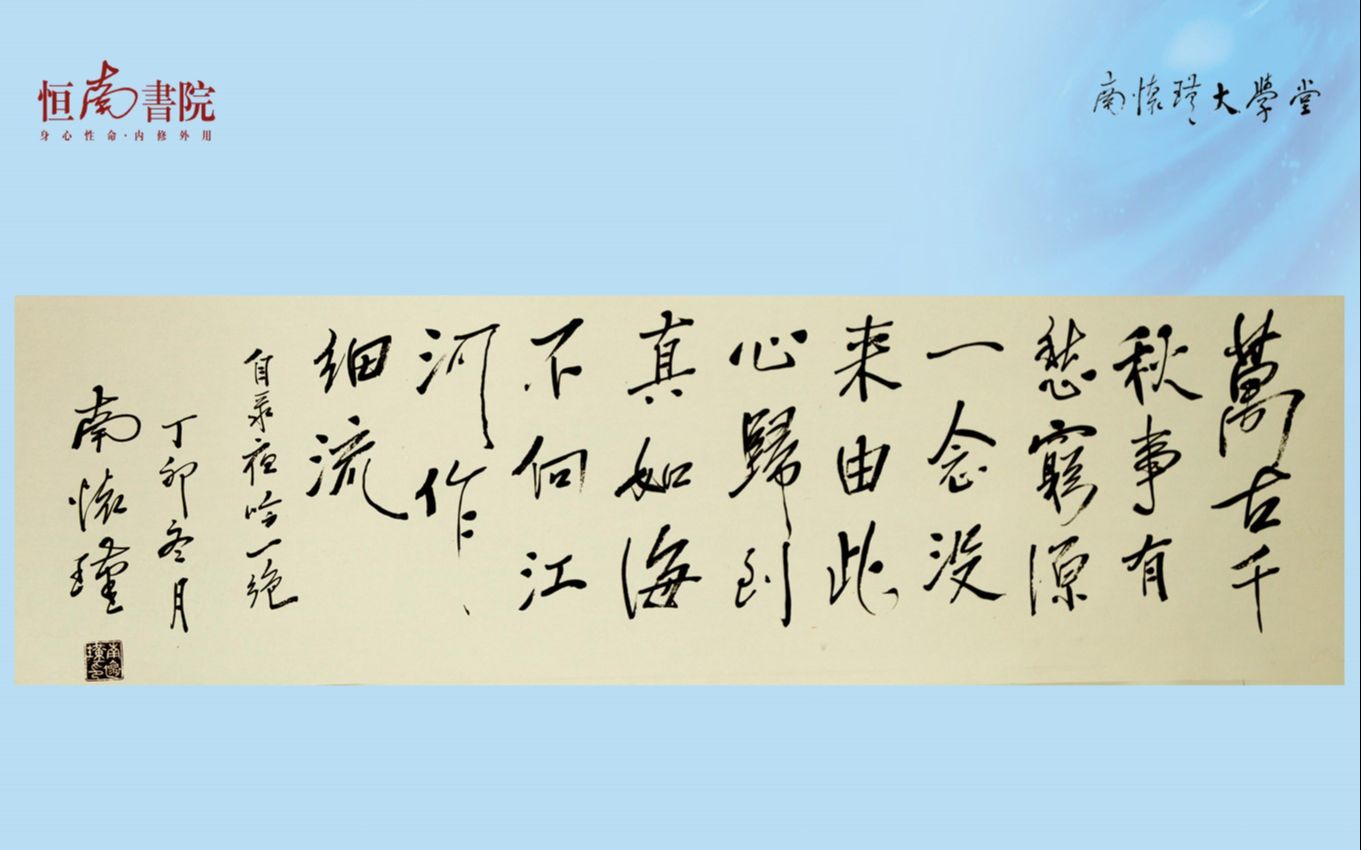 恒南書院
身心性命·内修外用
南懷瑾大學堂
萬古千
秋事有
愁窮源
一念没
来由此
心歸到
真如海
不向江
河作
细流
自录夜吟一绝
丁卯冬月
南懷瑾